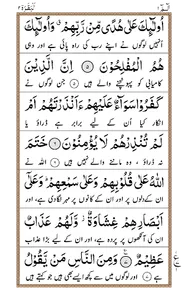 اُولٰٓئِكَ عَلٰى هُدًى مِّنْ رَّبِّهِمْ ۙ وَاُولٰٓئِكَ
انہیں لوگوں نے اپنے رب کی راہ پائی ہے اور وہی
هُمُ الْمُفْلِحُوْنَ ۝ اِنَّ الَّذِيْنَ
کامیابی کو پہونچنے والے ہیں جن لوگوں نے
كَفَرُوْا سَوَآءٌ عَلَيْهِمْ ءَاَنْذَرْتَهُمْ اَمْ
کفر کیا ان کے لئے برابر ہے ڈراؤ یا
لَمْ تُنْذِرْهُمْ لَا يُؤْمِنُوْنَ ۝ خَتَمَ
نہ ڈراؤ وہ ماننے والے نہیں ہیں اللہ نے
اللّٰهُ عَلٰى قُلُوْبِهِمْ وَعَلٰى سَمْعِهِمْ ؕ وَعَلٰٓى
ان کے دلوں پر اور ان کے کانوں پر مہر لگادی ہے اور
اَبْصَارِهِمْ غِشَاوَةٌ ؗ وَّلَهُمْ عَذَابٌ
ان کی آنکھوں پر پردہ ہے اور ان کے لئے بڑا عذاب
عَظِيْمٌ ۝ وَمِنَ النَّاسِ مَنْ يَّقُوْلُ
ہے اور لوگوں میں سے کچھ ایسے بھی ہیں جو کہتے ہیں